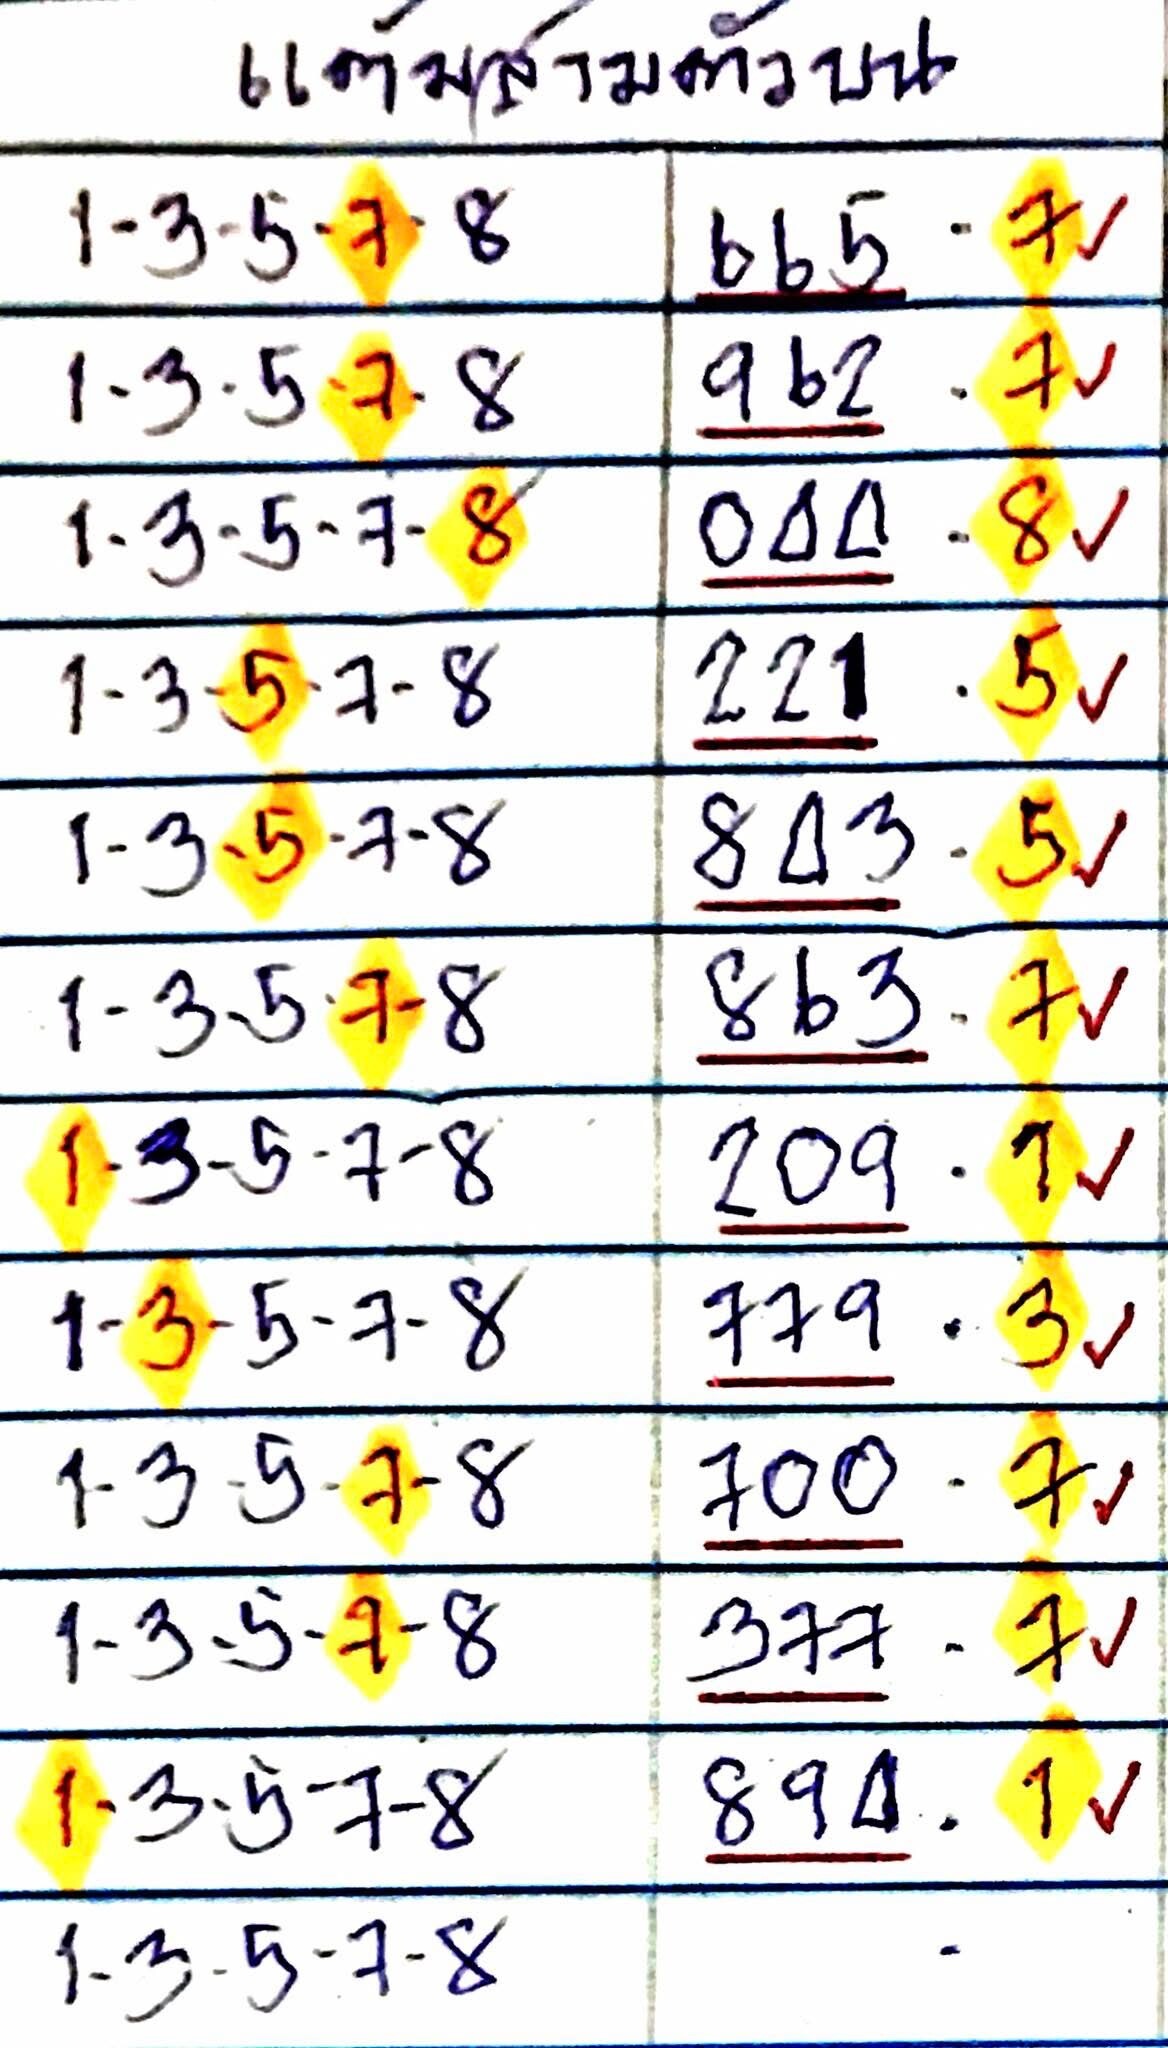 แต้มสามตัวบน
1-3-5-7-8 665 - 7✓
1-3-5-7-8 962 - 7✓
1-3-5-7-8 044 - 8✓
1-3-5-7-8 221 - 5✓
1-3-5-7-8 843 - 5✓
1-3-5-7-8 863 - 7✓
1-3-5-7-8 209 - 1✓
1-3-5-7-8 779 - 3✓
1-3-5-7-8 700 - 7✓
1-3-5-7-8 377 - 7✓
1-3-5-7-8 894 - 1✓
1-3-5-7-8 -